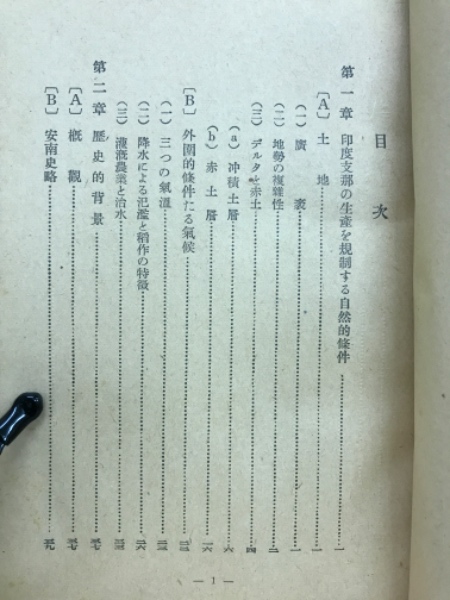 目次
第一章 印度支那の生産を規制する自然的條件……一
〔A〕土地……一
（一）廣袤……一
（二）地勢の複雜性……二
（三）デルタと赤土……四
（a）冲積土層……六
（b）赤土層……一六
〔B〕外圍的條件たる氣候
（一）三つの氣溫
（二）降水による氾濫と稻作の特徵……二六
（三）灌漑農業と治水
第二章 歷史的背景……三七
〔A〕概觀……三七
〔B〕安南史略……三九
— 1 —